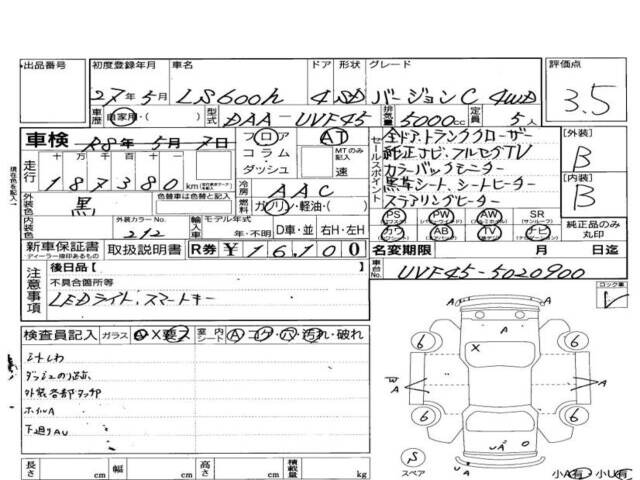 出品番号 初度登録年月 車名 ドア 形状 グレード 評価点
27年5月 LS600h 4 SD バージョンC 4WD 3.5
車歴 自家用・( ) 型式 DAA-UVF45 排気量 5000cc 定員 5人
車検 R8年5月7日 フロア AT セールスポイント 全ドア・トランククローザー [外装]
走行 十万千百十 コラム・ MTのみ記入 純正ナビ・フルセグTV B
187380km ダッシュ 速 カラーバックモニター
冷房 AAC 黒革シート、シートヒーター [内装]
外装色 黒 色替車は色替と記入 燃料 ガソリン・軽油・( ) ステアリングヒーター B
内装色 外装カラーNo. 212 輸入車 モデル年式 年・不明 D車・並 右H・左H
PS (パワステ) PW (パワーウインド) AW (アルミホイール) SR (サンルーフ)
カワ AB (エアバッグ) TV ナビ 純正品のみ丸印
新車保証書 ディーラー捺印あるもの 取扱説明書 R券 ¥16,100 名変期限 月 日迄
注意事項 後日品[ ] 車台No. UVF45-5020900
不具合箇所等 ロック車
LEDライト、スマートキー
検査員記入 ガラス A・X要ス 室内シート A・コゲ・穴・汚れ・破れ
シートしわ
外装各部タッチ有
ホイルA
下廻りAU
A
6 6
X
W A A
6 6
U A O
S スペア U A 小A有 小U有
長さ cm 幅 cm 高さ cm 積載量 kg